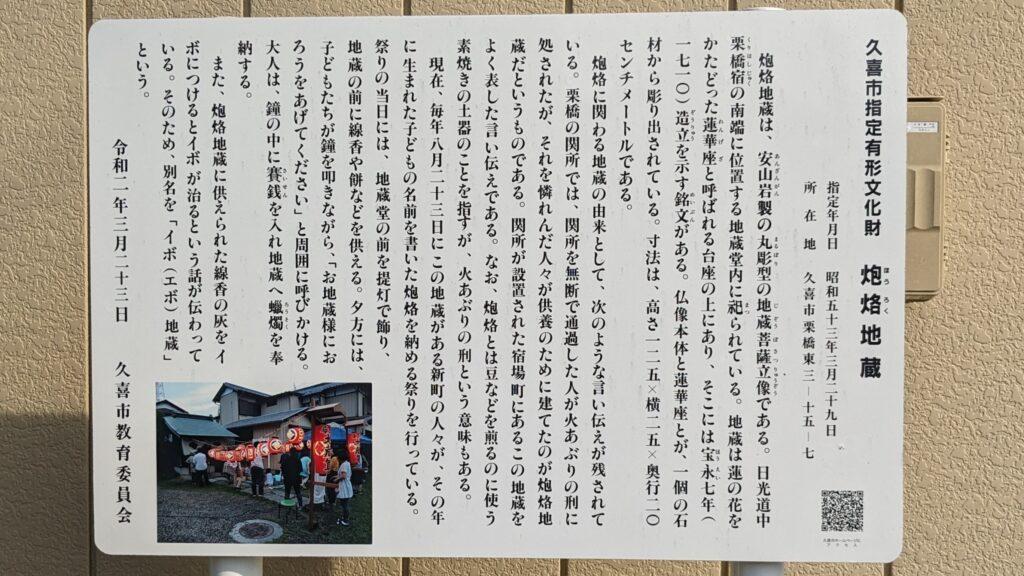 久喜市指定有形文化財　炮烙地蔵
ほうろく
指定年月日　昭和五十三年三月二十九日
所在地　久喜市栗橋東三―十五―七
炮烙地蔵は、安山岩製の丸彫型の地蔵菩薩立像である。日光道中
あんざんがん　まるぼり　じぞうぼさつりゅうぞう
栗橋宿の南端に位置する地蔵堂内に祀られている。地蔵は蓮の花を
くりはしじゅく　まつ
かたどった蓮華座と呼ばれる台座の上にあり、そこには宝永七年（
れんげざ　ほうえい
一七一〇）造立を示す銘文がある。仏像本体と蓮華座とが、一個の石
ぞうりゅう　めいぶん
材から彫り出されている。寸法は、高さ一二五×横二五×奥行二〇
センチメートルである。
炮烙に関わる地蔵の由来として、次のような言い伝えが残されて
いる。栗橋の関所では、関所を無断で通過した人が火あぶりの刑に
処されたが、それを憐れんだ人々が供養のために建てたのが炮烙地
蔵だというものである。関所が設置された宿場町にあるこの地蔵を
よく表した言い伝えである。なお、炮烙とは豆などを煎るのに使う
素焼きの土器のことを指すが、火あぶりの刑という意味もある。
現在、毎年八月二十三日にこの地蔵がある新町の人々が、その年
に生まれた子どもの名前を書いた炮烙を納める祭りを行っている。
祭りの当日には、地蔵堂の前を提灯で飾り、
地蔵の前に線香や餅などを供える。夕方には、
子どもたちが鐘を叩きながら、「お地蔵様にお
ろうをあげてください」と周囲に呼びかける。
大人は、鐘の中に賽銭を入れ地蔵へ蠟燭を奉
さいせん　ろうそく
納する。
また、炮烙地蔵に供えられた線香の灰をイ
ボにつけるとイボが治るという話が伝わって
いる。そのため、別名を「イボ（エボ）地蔵」
という。
令和二年三月二十三日　久喜市教育委員会
久喜市ホームページに
アクセス